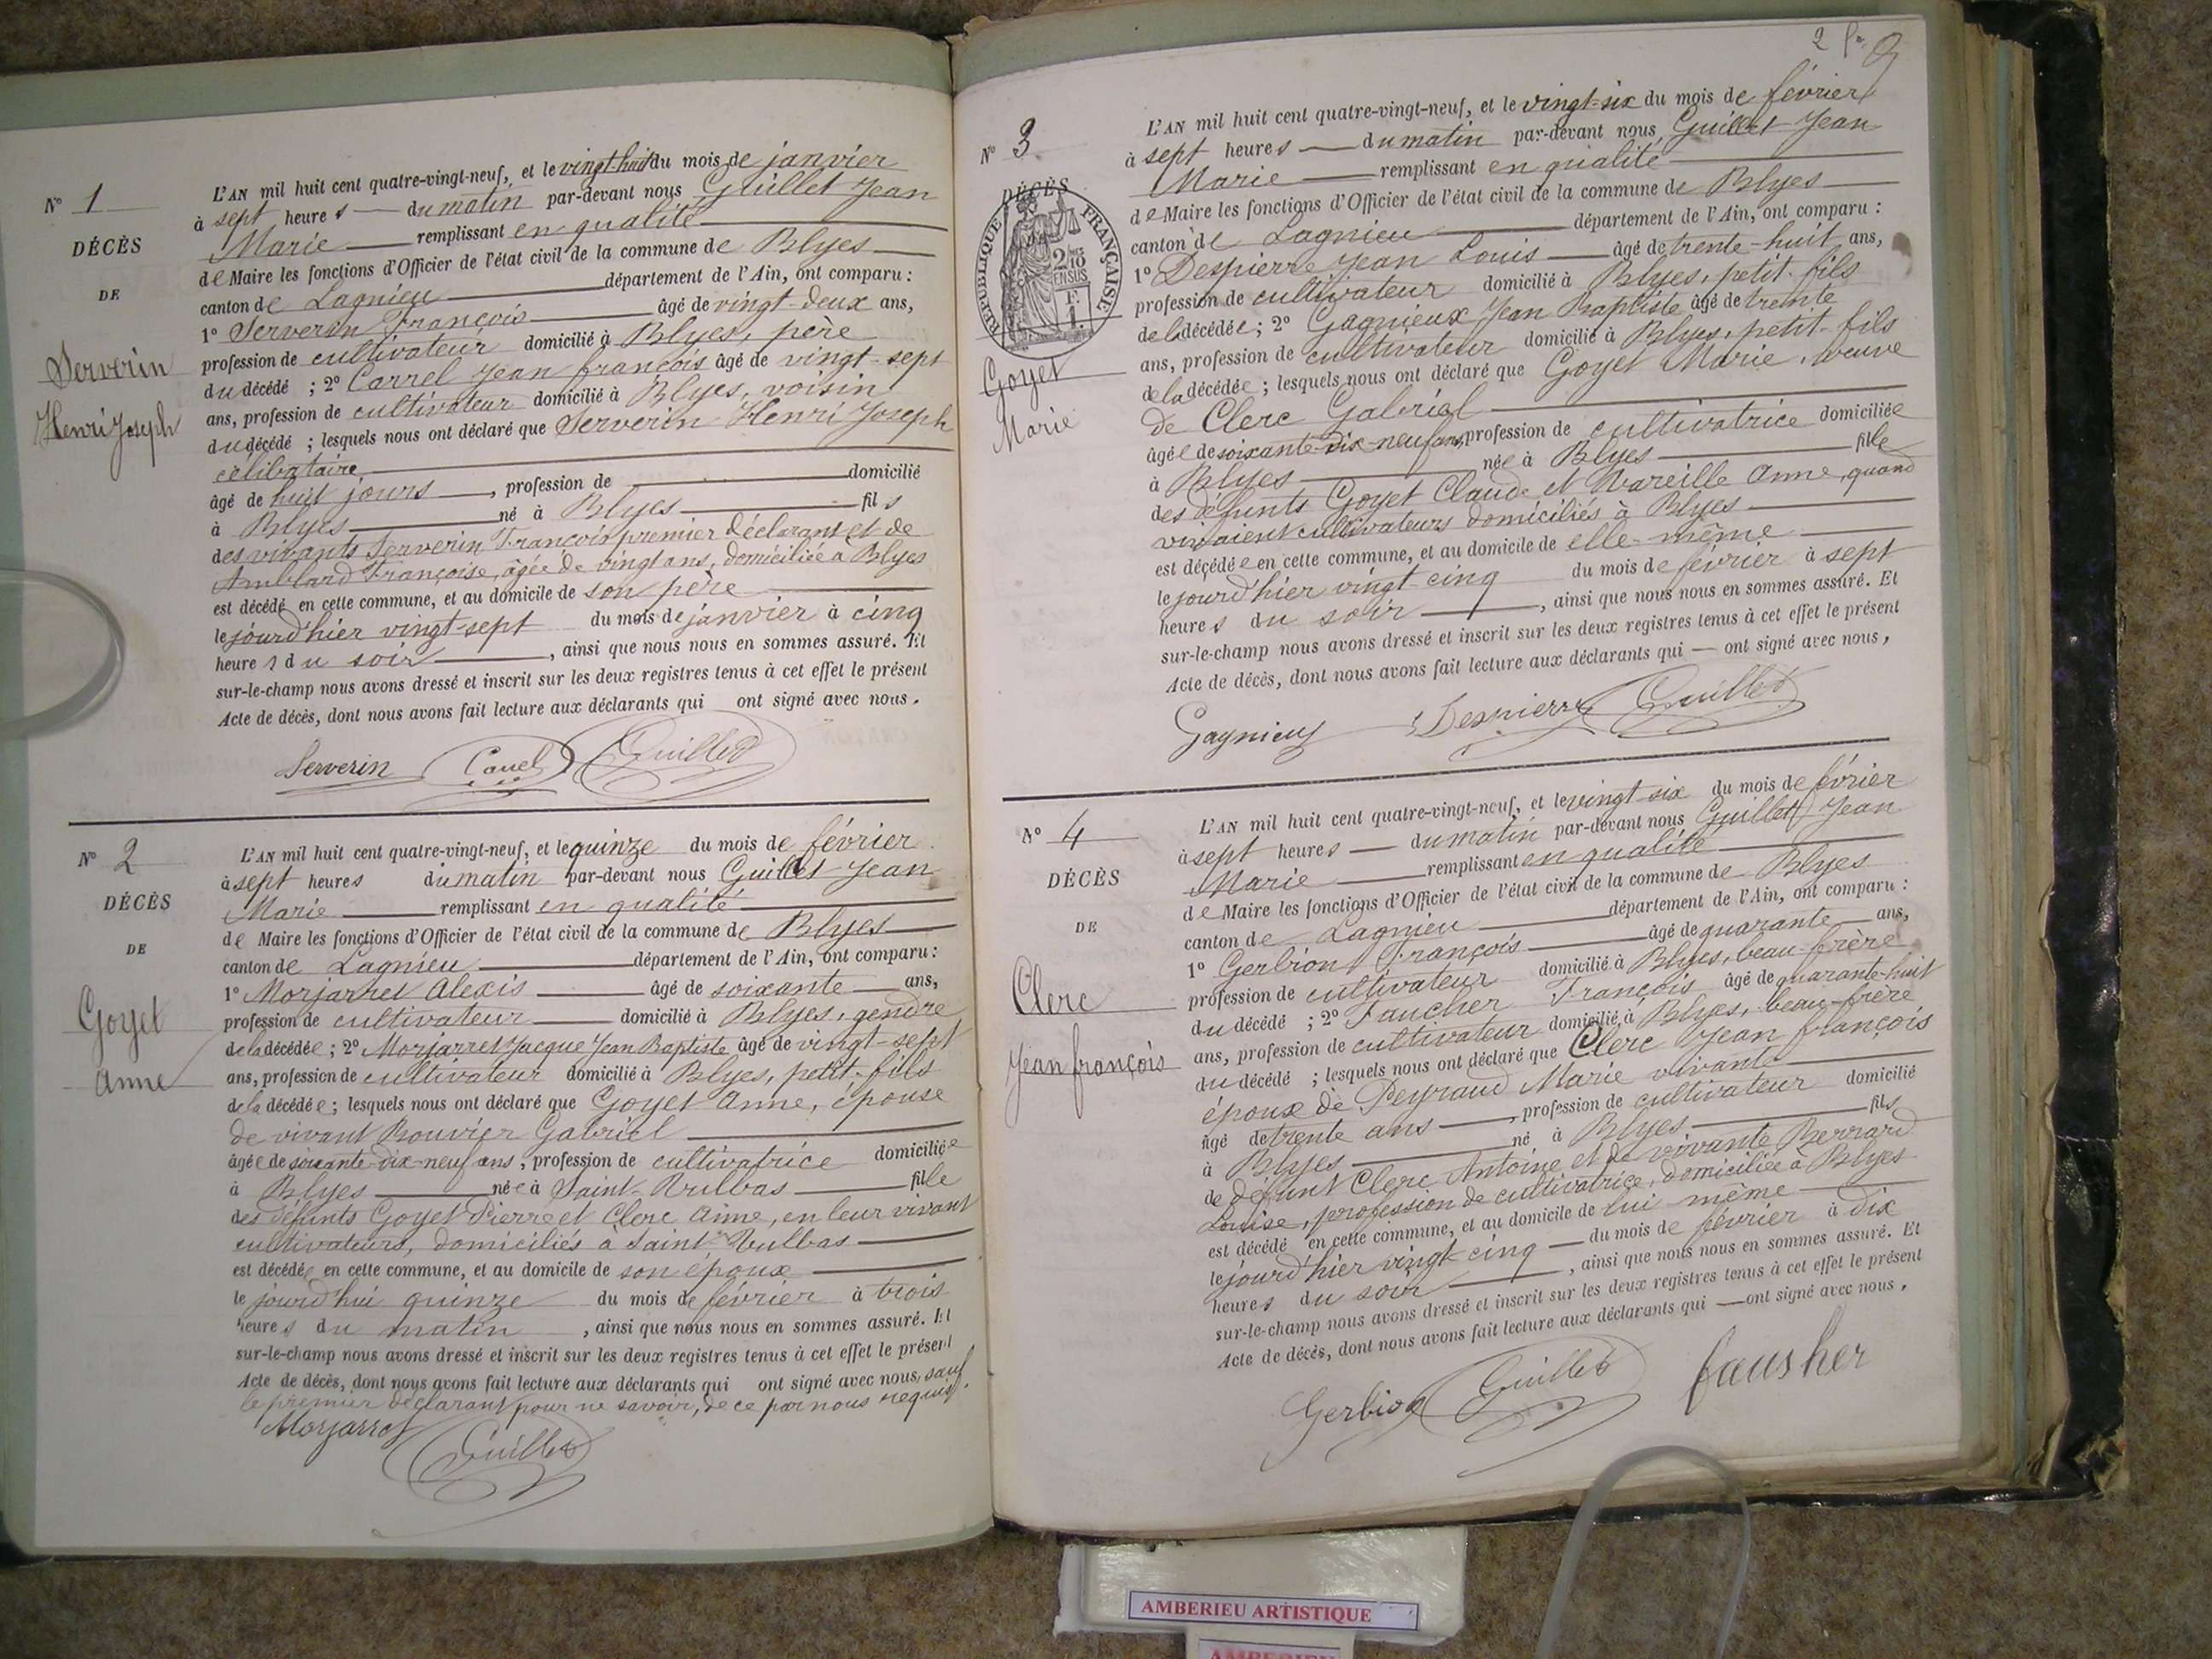 N° 1
DÉCÈS
DE
Serverin
Henri Joseph
L'AN mil huit cent quatre-vingt-neuf, et le vingt huit du mois de janvier
à sept heures du matin par-devant nous Guillet Jean
Marie remplissant en qualité
de Maire les fonctions d'Officier de l'état civil de la commune de Blyes
canton de Lagnieu département de l'Ain, ont comparu :
1° Serverin François âgé de vingt-deux ans,
profession de cultivateur domicilié à Blyes, père
du décédé ; 2° Carrel Jean françois âgé de vingt-sept
ans, profession de cultivateur domicilié à Blyes, voisin
du décédé ; lesquels nous ont déclaré que Serverin Henri Joseph
célibataire
âgé de huit jours, profession de domicilié
à Blyes né à Blyes fils
des vivants Serverin François premier déclarant et de
Amblard Françoise, âgée de vingt ans, domiciliée à Blyes
est décédé en cette commune, et au domicile de son père
le jourd'hier vingt-sept du mois de janvier à cinq
heures du soir, ainsi que nous nous en sommes assuré. Et
sur-le-champ nous avons dressé et inscrit sur les deux registres tenus à cet effet le présent
Acte de décès, dont nous avons fait lecture aux déclarants qui ont signé avec nous.
Serverin Carrel Guillet
N° 2
DÉCÈS
DE
Goyet
Anne
L'AN mil huit cent quatre-vingt-neuf, et le quinze du mois de février
à sept heures du matin par-devant nous Guillet Jean
Marie remplissant en qualité
de Maire les fonctions d'Officier de l'état civil de la commune de Blyes
canton de Lagnieu département de l'Ain, ont comparu :
1° Morjarret Alexis âgé de soixante ans,
profession de cultivateur domicilié à Blyes, gendre
de la décédée ; 2° Morjarret Jacque Jean Baptiste âgé de vingt-sept
ans, profession de cultivateur domicilié à Blyes, petit-fils
de la décédée ; lesquels nous ont déclaré que Goyet Anne, épouse
de vivant Bouvier Gabriel
âgée de soixante-dix-neuf ans, profession de cultivatrice domiciliée
à Blyes née à Saint-Vulbas fille
des défunts Goyet Pierre et Clerc Anne, en leur vivant
cultivateurs, domiciliés à Saint Vulbas
est décédée en cette commune, et au domicile de son époux
le jourd'hui quinze du mois de février à trois
heures du matin, ainsi que nous nous en sommes assuré. Et
sur-le-champ nous avons dressé et inscrit sur les deux registres tenus à cet effet le présent
Acte de décès, dont nous avons fait lecture aux déclarants qui ont signé avec nous, sauf
le premier déclarant pour ne savoir, de ce par nous requis.
Morjarret
Guillet
2
N° 3
DÉCÈS
RÉPUBLIQUE FRANÇAISE
2/10 EN SUS
1 F.
Goyet
Marie
L'AN mil huit cent quatre-vingt-neuf, et le vingt-six du mois de février
à sept heures du matin par-devant nous Guillet Jean
Marie remplissant en qualité
de Maire les fonctions d'Officier de l'état civil de la commune de Blyes
canton de Lagnieu département de l'Ain, ont comparu :
1° Despierre Jean Louis âgé de trente-huit ans,
profession de cultivateur domicilié à Blyes, petit-fils
de la décédée ; 2° Gagnieux Jean Baptiste âgé de trente
ans, profession de cultivateur domicilié à Blyes, petit-fils
de la décédée ; lesquels nous ont déclaré que Goyet Marie, veuve
de Clerc Gabriel
âgée de soixante-dix-neuf ans, profession de cultivatrice domiciliée
à Blyes née à Blyes fille
des défunts Goyet Claude et Mareille Anne, quand
vivaient cultivateurs domiciliés à Blyes
est décédée en cette commune, et au domicile de elle-même
le jourd'hier vingt-cinq du mois de février à sept
heures du soir, ainsi que nous nous en sommes assuré. Et
sur-le-champ nous avons dressé et inscrit sur les deux registres tenus à cet effet le présent
Acte de décès, dont nous avons fait lecture aux déclarants qui — ont signé avec nous,
Gagnieux Despierre Guillet
N° 4
DÉCÈS
DE
Clerc
Jean françois
L'AN mil huit cent quatre-vingt-neuf, et le vingt-six du mois de février
à sept heures du matin par-devant nous Guillet Jean
Marie remplissant en qualité
de Maire les fonctions d'Officier de l'état civil de la commune de Blyes
canton de Lagnieu département de l'Ain, ont comparu :
1° Gerbion François âgé de quarante ans,
profession de cultivateur domicilié à Blyes, beau-frère
du décédé ; 2° Faucher François âgé de quarante-huit
ans, profession de cultivateur domicilié à Blyes, beau-frère
du décédé ; lesquels nous ont déclaré que Clerc Jean françois
époux de Peyraud Marie vivante
âgé de trente ans, profession de cultivateur domicilié
à Blyes né à Blyes fils
de défunt Clerc Antoine et de vivante Berrard
Louise, profession de cultivatrice, domiciliée à Blyes
est décédé en cette commune, et au domicile de lui-même
le jourd'hier vingt-cinq du mois de février à dix
heures du soir, ainsi que nous nous en sommes assuré. Et
sur-le-champ nous avons dressé et inscrit sur les deux registres tenus à cet effet le présent
Acte de décès, dont nous avons fait lecture aux déclarants qui — ont signé avec nous.
Gerbion Guillet fausher
AMBERIEU ARTISTIQUE
AMBERIEU